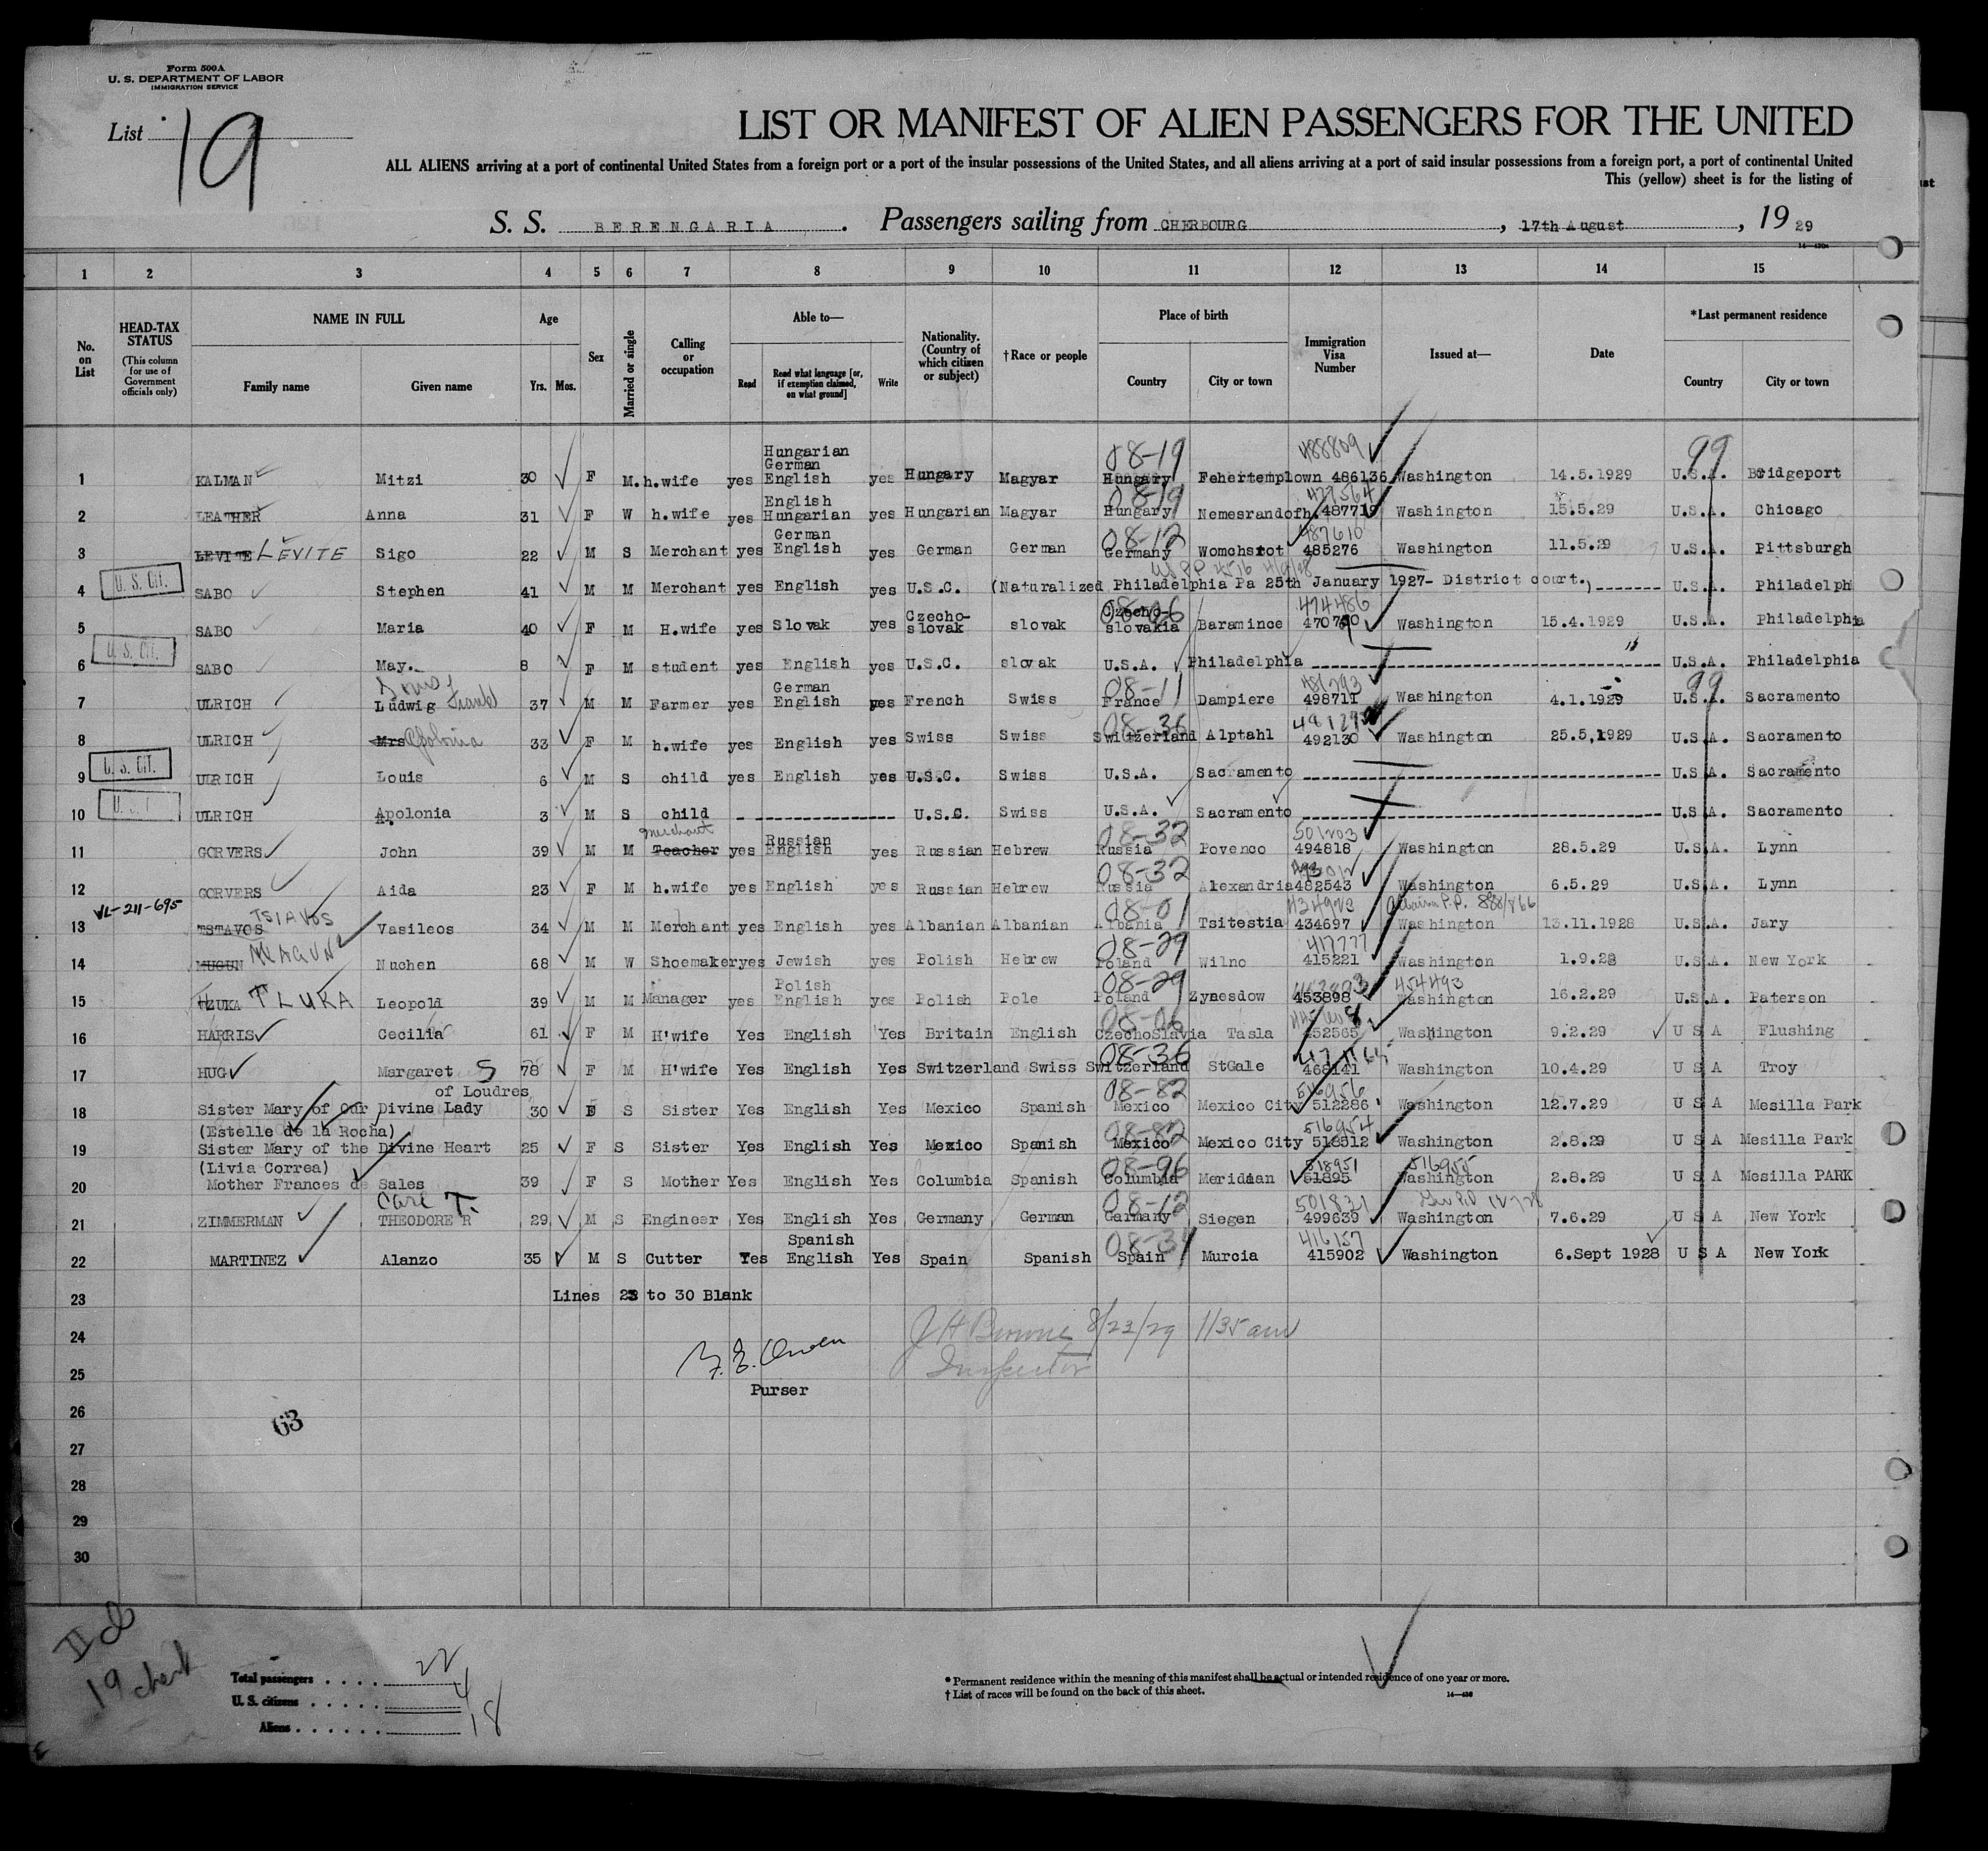 Form 500A
U. S. DEPARTMENT OF LABOR
IMMIGRATION SERVICE
List 19
LIST OR MANIFEST OF ALIEN PASSENGERS FOR THE UNITED
ALL ALIENS arriving at a port of continental United States from a foreign port or a port of the insular possessions of the United States, and all aliens arriving at a port of said insular possessions from a foreign port, a port of continental United
This (yellow) sheet is for the listing of
S. S. BERENGARIA. Passengers sailing from CHERBOURG, 17th August, 19 29
1 2 3 4 5 6 7 8 9 10 11 12 13 14 15
No. on List
HEAD-TAX STATUS
(This column for use of Government officials only)
NAME IN FULL
Family name Given name
Age
Yrs. Mos.
Sex
Married or single
Calling or occupation
Able to—
Read
Read what language [or, if exemption claimed, on what ground]
Write
Nationality. (Country of which citizen or subject)
†Race or people
Place of birth
Country City or town
Immigration Visa Number
Issued at—
Date
*Last permanent residence
Country City or town
1 KALMAN Mitzi 30 F M. h.wife yes Hungarian German English yes Hungary Magyar 08-19 Hungary Fehertemplown 488809 486136 Washington 14.5.1929 99 U.S.A. Bridgeport
2 LEATHER Anna 31 F W h.wife yes English Hungarian yes Hungarian Magyar 08-19 Hungary Nemesrandofh. 487719 Washington 15.5.29 U.S.A. Chicago
3 LEVITE LEVITE Sigo 22 M S Merchant yes German English yes German German 08-12 Germany Womchstot 487610 485276 Washington 11.5.29 U.S.A. Pittsburgh
4 U. S. CIT. SABO Stephen 41 M M Merchant yes English yes U.S.C. (Naturalized Philadelphia Pa 25th January 1927- District court.) U.S.A. Philadelph
5 SABO Maria 40 F M H.wife yes Slovak yes Czecho-slovak slovak 08-06 Czecho-slovakia Baramince 474486 Washington 15.4.1929 U.S.A. Philadelphia
6 U. S. CIT. SABO May. 8 F M student yes English yes U.S.C. slovak U.S.A. Philadelphia U.S.A. Philadelphia
7 ULRICH Ludwig 37 M M Farmer yes German English yes French Swiss 08-11 France Dampiere 481293 498711 Washington 4.1.1929 99 U.S.A. Sacramento
8 ULRICH Mrs Apolonia 33 F M h.wife yes English yes Swiss Swiss 08-36 Switzerland Alptahl 492130 Washington 25.5.1929 U.S.A. Sacramento
9 U. S. CIT. ULRICH Louis 6 M S child yes English yes U.S.C. Swiss U.S.A. Sacramento U.S.A. Sacramento
10 ULRICH Apolonia 3 M S child U.S.C. Swiss U.S.A. Sacramento U.S.A. Sacramento
11 GORVERS John 39 M M merchant Teacher yes Russian English yes Russian Hebrew 08-32 Russia Povenco 501203 494818 Washington 28.5.29 U.S.A. Lynn
12 GORVERS Aida 23 F M h.wife yes English yes Russian Hebrew 08-32 Russia Alexandria 482543 Washington 6.5.29 U.S.A. Lynn
13 VL-211-695 TSTAVOS TSIAVOS Vasileos 34 M M Merchant yes English yes Albanian Albanian 08-01 Albania Tsitestia 434697 Washington 13.11.1928 U.S.A. Jary
14 MUGUN MAGUN Nuchen 68 M W Shoemaker yes Jewish yes Polish Hebrew 08-29 Poland Wilno 417777 415221 Washington 1.9.28 U.S.A. New York
15 TLUKA Leopold 39 M M Manager yes Polish English yes Polish Pole 08-29 Poland Zynesdow 453898 454493 Washington 16.2.29 U.S.A. Paterson
16 HARRIS Cecilia 61 F M H'wife Yes English Yes Britain English 08-06 CzechoSlavia Tasla 452565 Washington 9.2.29 U S A Flushing
17 HUG Margaret S 78 F M H'wife Yes English Yes Switzerland Swiss 08-36 Switzerland StGale 468141 Washington 10.4.29 U S A Troy
18 Sister Mary of Our Divine Lady of Loudres 30 F S Sister Yes English Yes Mexico Spanish 08-82 Mexico Mexico City 516956 512286 Washington 12.7.29 U S A Mesilla Park
(Estelle de la Rocha)
19 Sister Mary of the Divine Heart 25 F S Sister Yes English Yes Mexico Spanish 08-82 Mexico Mexico City 516954 512512 Washington 2.8.29 U S A Mesilla Park
(Livia Correa)
20 Mother Frances de Sales 39 F S Mother Yes English Yes Columbia Spanish 08-96 Columbia Meridian 518951 51895 516955 Washington 2.8.29 U S A Mesilla PARK
21 ZIMMERMAN Carl T. THEODORE R 29 M S Engineer Yes English Yes Germany German 08-12 Garmany Siegen 501831 499639 Washington 7.6.29 U S A New York
22 MARTINEZ Alanzo 35 M S Cutter Yes Spanish English Yes Spain Spanish Spain Murcia 416157 415902 Washington 6.Sept 1928 U S A New York
23 Lines 23 to 30 Blank
24 J H Browne 8/23/29 1135 am
25 Inspector
Purser
26
63
27
28
29
30
19 check
Total passengers . . . . 22
U. S. citizens . . . . . 4
Aliens . . . . . . 18
* Permanent residence within the meaning of this manifest shall be actual or intended residence of one year or more.
† List of races will be found on the back of this sheet.